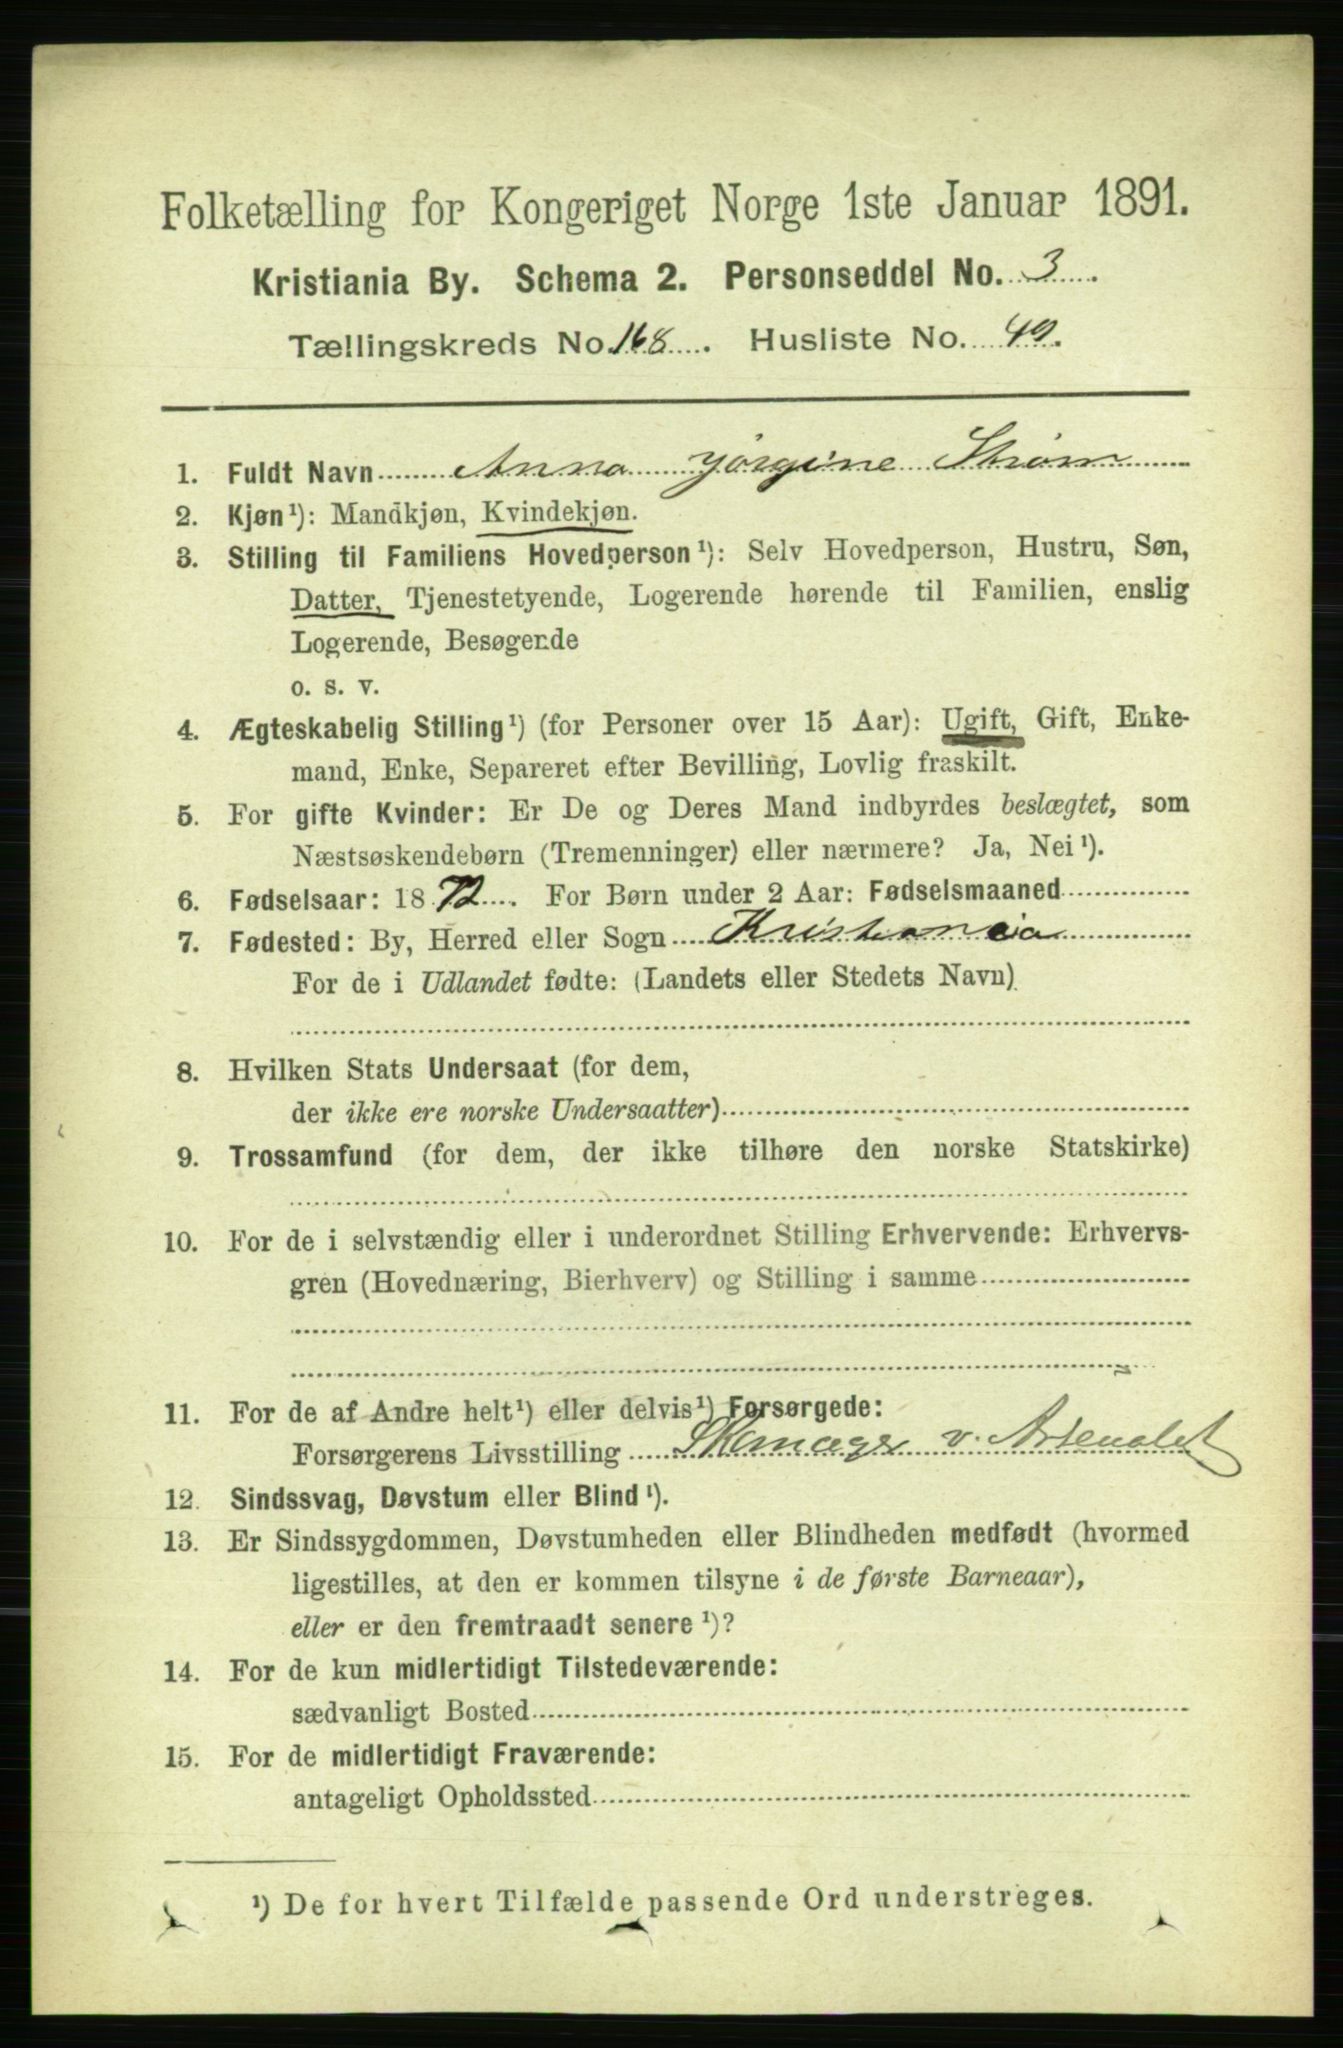 Folketælling for Kongeriget Norge 1ste Januar 1891.
Kristiania By. Schema 2. Personseddel No. 3.
Tællingskreds No. 168. Husliste No. 49.
1. Fuldt Navn Anna Jørgine Strøm
2. Kjøn¹): Mandkjøn, Kvindekjøn.
3. Stilling til Familiens Hovedperson¹): Selv Hovedperson, Hustru, Søn,
Datter, Tjenestetyende, Logerende hørende til Familien, enslig
Logerende, Besøgende
o. s. v.
4. Ægteskabelig Stilling¹) (for Personer over 15 Aar): Ugift, Gift, Enke-
mand, Enke, Separeret efter Bevilling, Lovlig fraskilt.
5. For gifte Kvinder: Er De og Deres Mand indbyrdes beslægtet, som
Næstsøskendebørn (Tremenninger) eller nærmere? Ja, Nei¹).
6. Fødselsaar: 1872. For Børn under 2 Aar: Fødselsmaaned
7. Fødested: By, Herred eller Sogn Kristiania
For de i Udlandet fødte: (Landets eller Stedets Navn)
8. Hvilken Stats Undersaat (for dem,
der ikke ere norske Undersaatter)
9. Trossamfund (for dem, der ikke tilhøre den norske Statskirke)
10. For de i selvstændig eller i underordnet Stilling Erhvervende: Erhvervs-
gren (Hovednæring, Bierhverv) og Stilling i samme
11. For de af Andre helt¹) eller delvis¹) Forsørgede:
Forsørgerens Livsstilling v. Arsenalet
12. Sindssvag, Døvstum eller Blind¹).
13. Er Sindssygdommen, Døvstumheden eller Blindheden medfødt (hvormed
ligestilles, at den er kommen tilsyne i de første Barneaar),
eller er den fremtraadt senere¹)?
14. For de kun midlertidigt Tilstedeværende:
sædvanligt Bosted
15. For de midlertidigt Fraværende:
antageligt Opholdssted
¹) De for hvert Tilfælde passende Ord understreges.